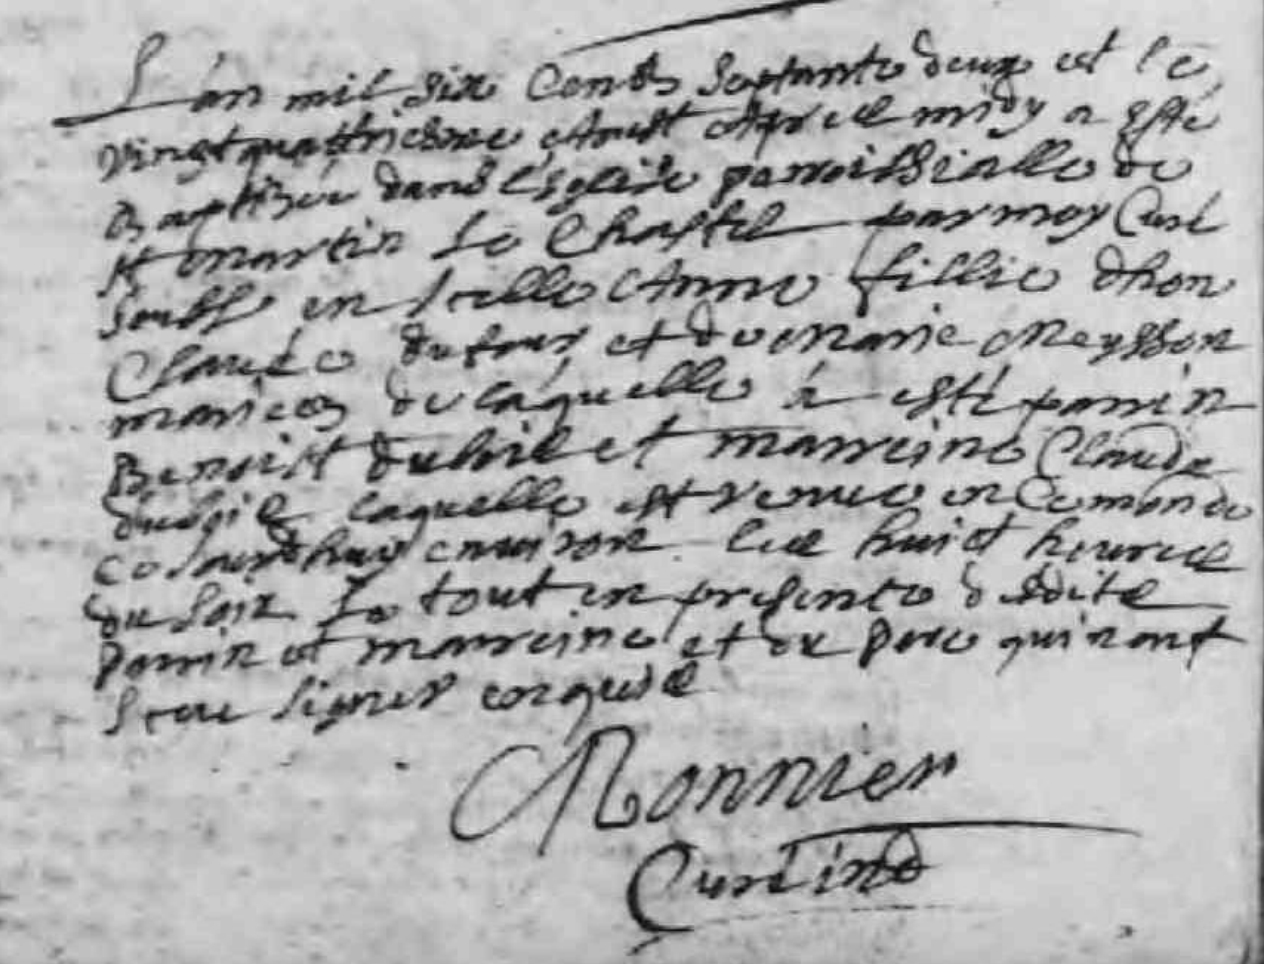 L'an mil six cents septante deux et le
vingtquattriesme Aoust apres midy a esté
baptisée dans l'esglise parroissialle de
st martin le Chastel par moy Curé
soubs en icelle Anne fillie d'hon
Claude dufour et de Marie Meysson
mariés de laquelle à esté parrin
Benoist et marreine Claude
laquelle est venue en ce monde
ce jourdhuy environ les huict heures
du soir Le tout en presence desdits
parrin et marreine et du pere qui n'ont
sceu signer enquis
Monnier
Curé